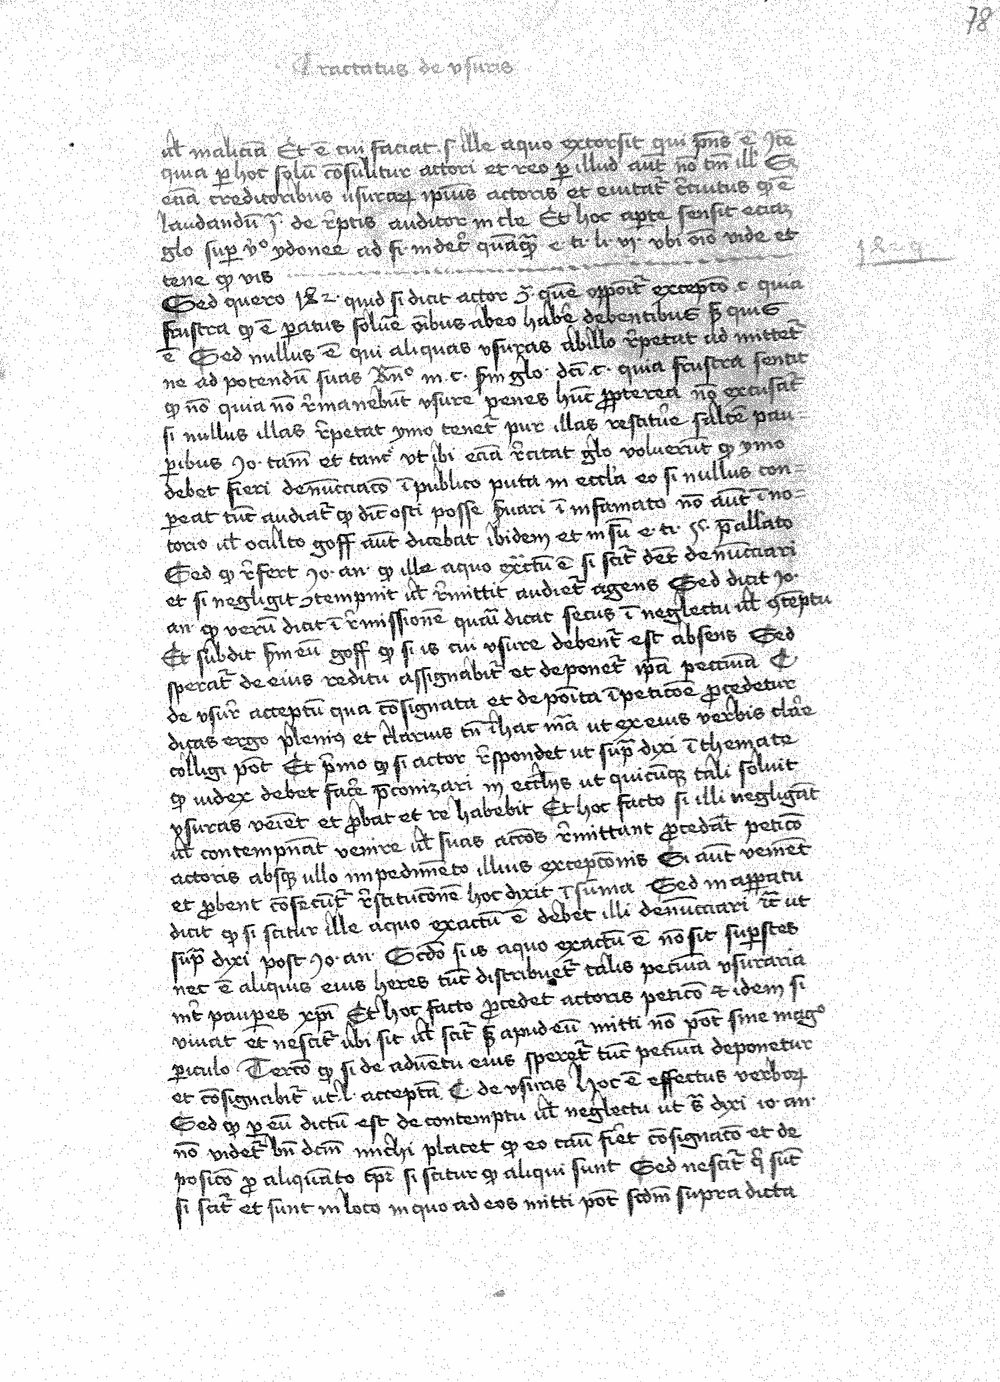 78
Tractatus de vsuris
ul̄ maliciā Et ē cui faciat s ille aquo extorsit qui p̄ns ē Itē
quia p hoc solū cōsulitur actori et reo p illud aūt nō tm̄ ill Si
eciā creditoribus vsurarꝝ ipius actoris et euitat᷑ circuitus qd̓ ē
laudandū de r̄ptis auditor in cle Et hoc apte sensit eciaȝ
glo sup v̓o ydonee ad fi indet᷑ quāqȝ e ti li vj vbi oīo vide et
tene qd̓ vis
1829
Sed quero 182 quid si dicit actor quē oppōit exceptō c quia
frustra qd̓ ē paratus soluē oībus abeo habēe debentibus s̄ quis
ē Sed nullus ē qui aliquas vsuras abillo r̄petat ad mittet᷑
ne ad potendū suas Rn̄o in c hm̄ glo dcī c quia frustra sentit
qd̓ nō quia nō r̄manebūt vsure penes hūc ꝓpterea nō excusat᷑
si nullus illas r̄petat ymo tenet᷑ pur illas restitūe saltē pau=
pibus Jo tam̄ et tanc vt ibi eciā r̄citat glo voluerūt qd̓ ymo
debet fieri denūcciacō ī publico puta in eccla eo si nullus con=
peat tūc audiat᷑ qd̓ dūc osti posse s̄uari ī infamato nō aūt ī no=
torio ul̄ oculto goff aūt dicebat ibidem et in sū e ti § p̄allato
Sed qd̓ r̄fert Jo an qd̓ ille aquo exactū ē si scit᷑ dēt denūcciari
et si negligit ꝯtempnit ul̄ r̄mittit audiet᷑ agens Sed dicit Jo
an qd̓ verū dicit ī r̄missionē quā dicat secus ī neglectu ul̄ ꝯteptu
Et subdit hm̄ eū goff qd̓ si is cui vsure debent᷑ est absens Sed
sperat᷑ de eius reditu assignabit᷑ et deponet᷑ ipā peccunia C
de vsur acceptū qua cōsignata et depoīta ī peticōe ꝓcedetur
dicas ergo pleniꝰ et clarius tn̄ ī hac mā ut ex eius verbis clare
colligi pōt Et p̄mo qd̓ si actor r̄spondet ut sup̄ dixi ī themate
qd̓ iudex debet facē p̄conizari in ecclijs ut quicūqȝ tali soluit
vsuras veniet et ꝓbat et re habebit Et hoc facto si illi negligāt
ul̄ contempnāt venire ul̄ suas accōs r̄mittant ꝓcedat peticō
actoris absqȝ ullo inpedimēto illius exceptōnis Si aūt venīēt
et ꝓbent cōsecūt᷑ r̄stitucōnē hoc dixit ī suma Sed in apparatu
dicit qd̓ si scitur ille aquo exactū ē debet illi denūcciari ut
sup̄ dixi post Jo an Scdō si is aquo exactū ē nō sit supstes
nec ē aliquis eius heres tūc distribuet᷑ talis pecunia vsuraria
int̄ paupes xp̄i Et hoc facto ꝓcedet actoris peticō et idem si
viuat et nescit᷑ ubi sit ul̄ scit᷑ s̄ apud eū mitti nō pōt sine magͦ
piculo Tercō qd̓ si de aduētu eius speret᷑ tūc pecunia deponetur
et cōsignabit᷑ ut l acceptā C de vsuris hoc ē effectus verborꝝ
Sed qd̓ p eū dictū est de contemptu ul̄ neglectu ut s̄ dixi io an
nō videt᷑ bn̄ dcm̄ michi placet qd̓ eo cāu fiet cōsignacō et de
posicō ꝓ aliquāto tpr̄ si scitur qd̓ aliqui sunt Sed nescit᷑ qͥ sūt
si scit᷑ et sunt in loco in quo ad eos mitti pōt scdm̄ supra dicta